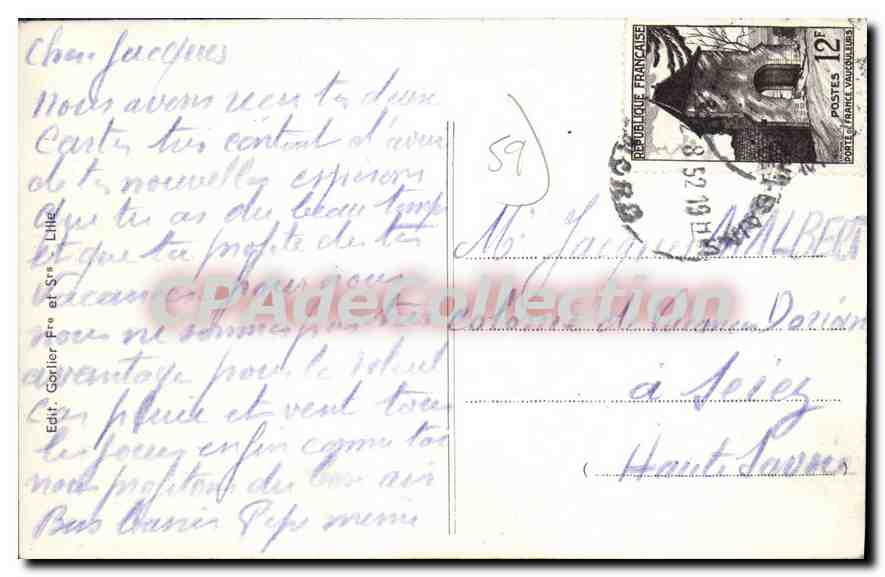 Cher Jacques
Nous avons recu tes deux
Cartes très content d'avoir
de tes nouvelles esperons
que tu as du beau temps
et que tu profite de tes
vacances pour nous
nous ne sommes pas très
avantage pour le soleil
Car pluie et vent tous
les jours enfin comme toi
nous profitons du bon air
Bons Baisers Pepe meme
Edit. Gorlier Fre et Srs Lille
59
REPUBLIQUE FRANÇAISE
12F
POSTES
PORTE DE FRANCE VAUCOULEURS
8 52 19H
Mr Jacques MALBECT
Colonie de Vacances Dorian
à Seiez
(Haute Savoie)
CPADeCollection